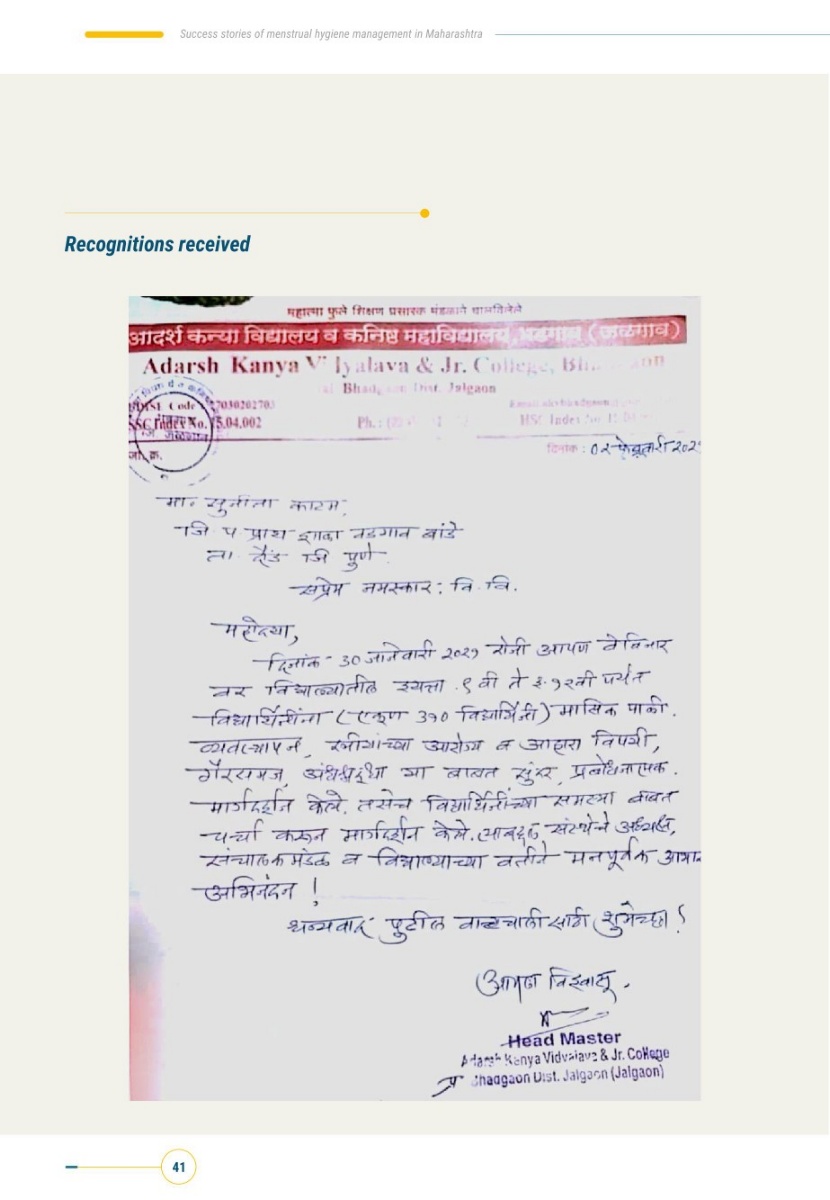 Success stories of menstrual hygiene management in Maharashtra
Recognitions received
महात्मा फुले शिक्षण प्रसारक मंडळाने चालविलेले
आदर्श कन्या विद्यालय व कनिष्ठ महाविद्यालय, भडगाव (जळगाव)
Adarsh Kanya & Jr. College,
Dist. Jalgaon
Code
Index No. 5.04.002
Ph.: HSC Index No.
दिनांक : 02 फेब्रुवारी
मा. सुनीता काटम,
जि प प्राथ शाळा वडगाव बांडे
ता. दौंड जि पुणे.
सप्रेम नमस्कार: वि. वि.
महोदया,
दिनांक - 30 जानेवारी 2021 रोजी आपण वेबिनार
वर विद्यालयातील इयत्ता ९ वी ते इ. १२वी पर्यंत
विद्यार्थिनींना (एकूण 310 विद्यार्थिनी) मासिक पाळी.
व्यवस्थापन, स्त्रीयांच्या आरोग्य व आहारा विषयी,
गैरसमज, अंधश्रद्धा या बाबत सुंदर, प्रबोधनात्मक.
मार्गदर्शन केले. तसेच विद्यार्थिनींच्या समस्या बाबत
चर्चा करून मार्गदर्शन केले. त्याबद्दल संस्थेचे अध्यक्ष,
संचालक मंडळ व विद्यालयाच्या वतीने मनपूर्वक आभार
अभिनंदन !
धन्यवाद पुढील वाटचाली साठी शुभेच्छा !
आपला विश्वासू.
Head Master
Adarsh Kanya Vidyalaya & Jr. College
Bhadgaon Dist. Jalgaon (Jalgaon)
41